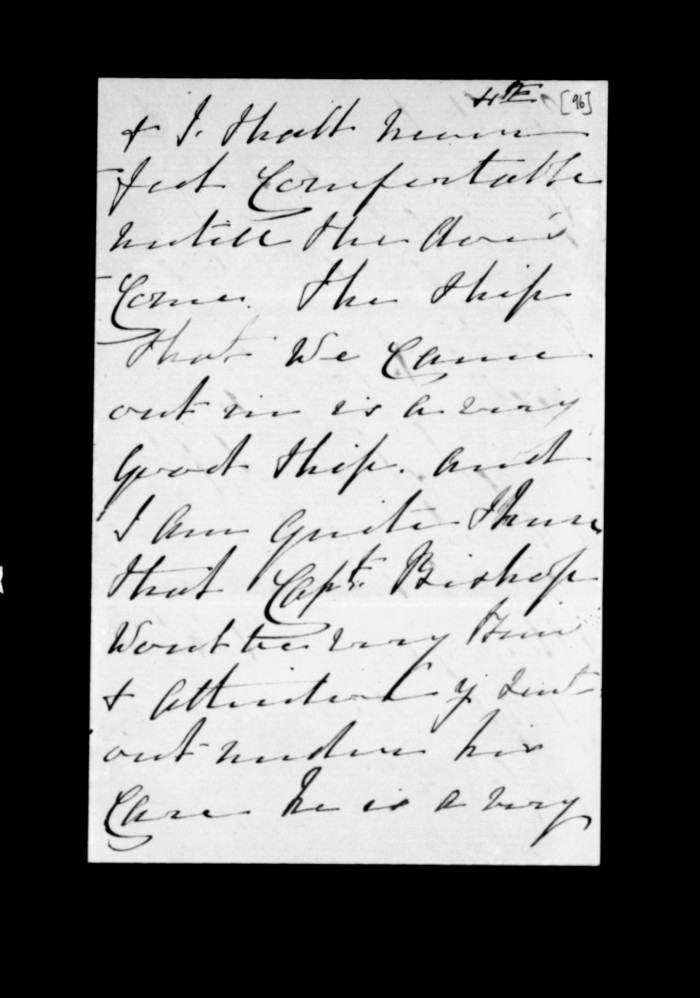 4th [96]
& I. shall never
feel Comfortable
untill she does
Come. The Ship
that We Came
out in is a very
good Ship. and
I am quite Shure
that Capt. Bishop
Would be very Kind
& Attentive if sent
out under his
Care he is a very